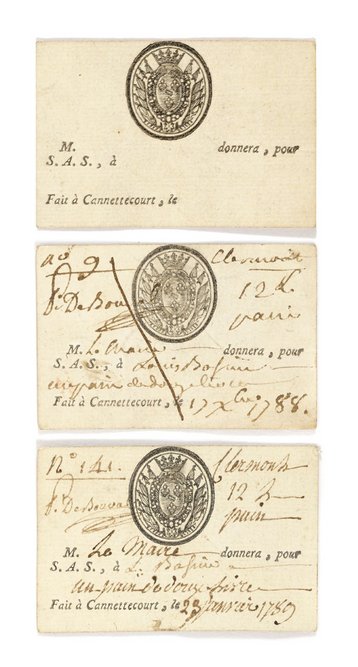 M. donnera, pour
S. A. S., à
Fait à Cannettecourt, le
No 9 Clermont
12 ℔
pain
M. Le Maire donnera, pour
S. A. S., à Louis Bassin
un pain de douze livres
Fait à Cannettecourt, le 17 Xbre 1788.
No 141. Clermont
12 ℔
pain
M. Le Maire donnera, pour
S. A. S., à L. Bassin
un pain de douze livres
Fait à Cannettecourt, le 23 janvier 1789